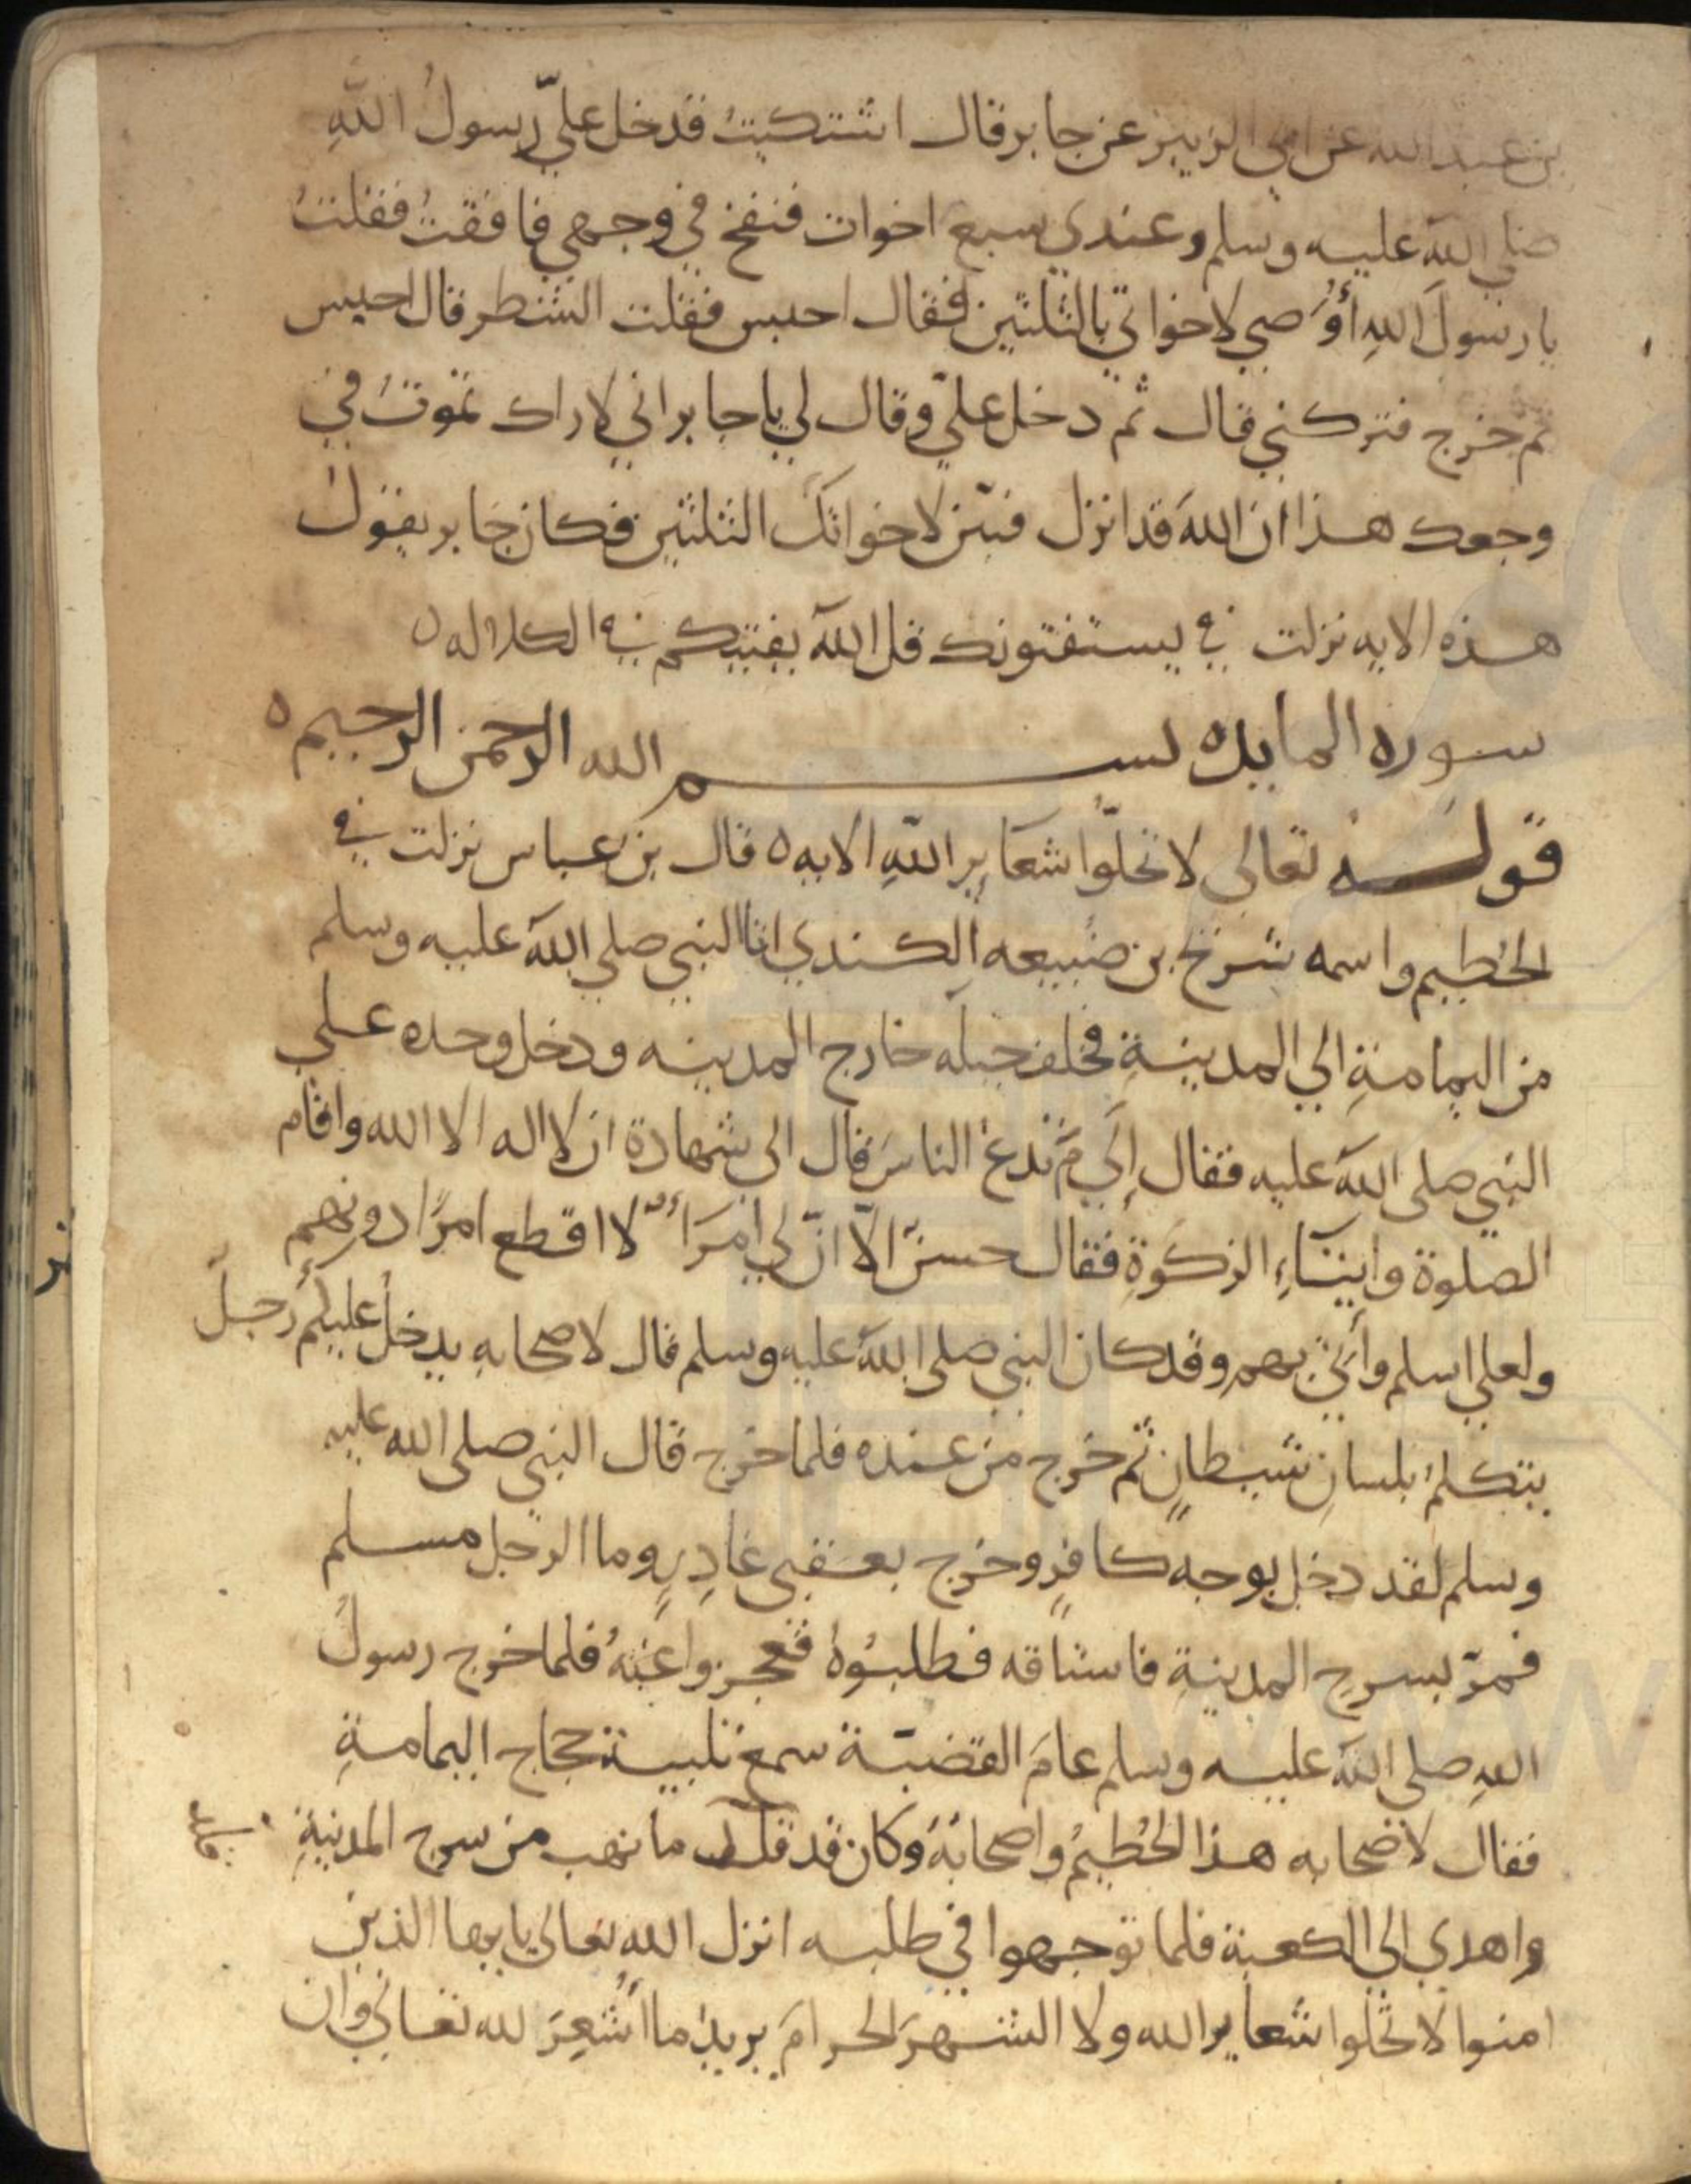 بن عبد الله عن ابي الزبير عن جابر قال اشتكيتُ فدخل عليّ رسولُ اللهِ
صلي الله عليه وسلم وعندي سبع اخوات فنفخ في وجهي فافقتُ فقلتُ
يا رسولَ اللهِ أُوصي لاخواتي بالثلثين فقال احبس فقلت الشطر قال احبس
ثم خرج فتركني قال ثم دخل عليّ وقال لي يا جابر اني لا اراك تموتُ في
وجعك هذا ان اللهَ قد انزل فبيّن لاخواتك الثلثين فكان جابر يقول
هذه الايه نزلت في يستفتونك قل الله يفتيكم في الكلاله ه
سوره المايده بســـم الله الرحمن الرحيم ه
قولـــه تعالى لا تحلّوا شعايِر اللهِ الايه ه قال بن عباس نزلت في
الحُطيم واسمه شريح بن ضُبيعه الكندي اتا النبي صلي الله عليه وسلم
من اليمامةِ الي المدينةِ فخلف خيله خارج المدينه ودخل وحده علي
النبي صلى الله عليه فقال إلَي مَ تدعُ الناسَ قال الى شهادة ان لا اله الا الله واقام
الصلوة وايتاءِ الزكوةِ فقال حسنٌ الاّ انّ لي امَرَأً لا اقطع امرًا دونهم
ولعلي اسلم وأتي بهم وقد كان النبي صلى الله عليه وسلم قال لاصحابه يدخلُ عليكم رجلٌ
يتكلمُ بلسانِ شيطانٍ ثم خرج من عنده فلما خرج قال النبي صلى الله عليه
وسلم لقد دخل بوجه كافرٍ وخرج بعقبي غادِرٍ وما الرجل مسلم
فمرّ بسرحِ المدينةِ فاستاقه فطلبُوهُ فعجزوا عنهُ فلما خرج رسولُ
اللهِ صلى الله عليه وسلم عامَ القضيّة سمع تلبيةَ حجاج اليمامةِ
فقال لاصحابه هذا الحُطيمُ واصحابهُ وكان قد قلد ما نهب من سرح المدينةِ
واهدي الي الكعبة فلما توجهوا في طلبه انزل الله تعالى يا يها الذين
امنوا لا تحلوا شعاير الله ولا الشهرَ الحرامَ يريدُ ما اُشعِرَ لله تعالي وان